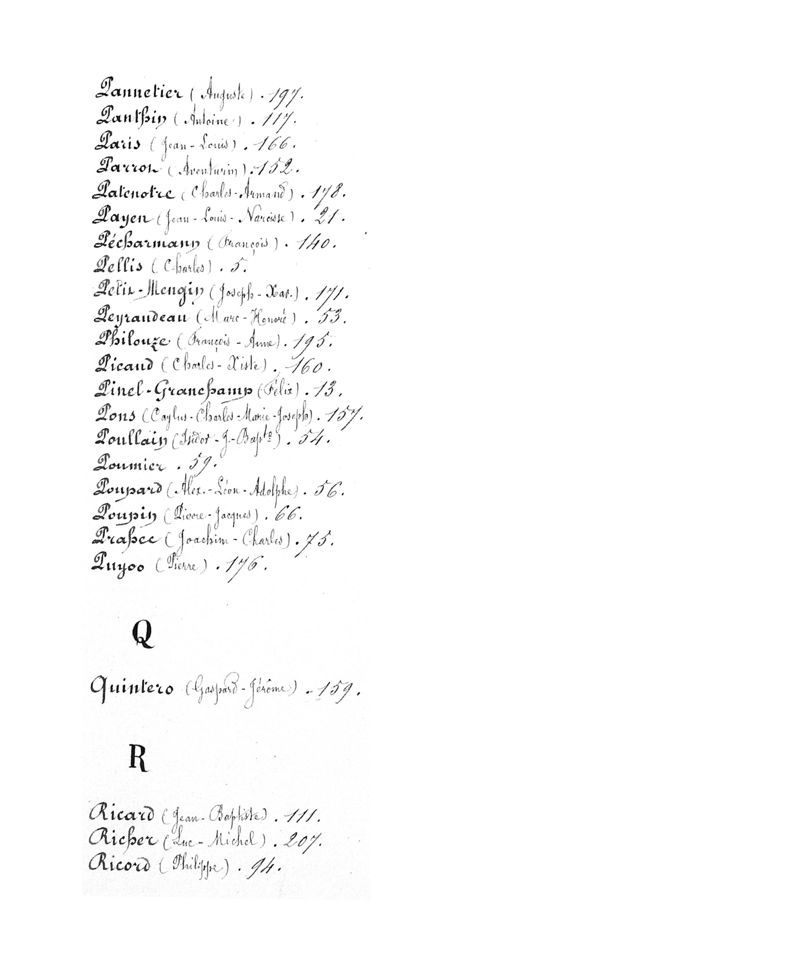 Pannetier (Auguste). 197.
Panthin (Antoine). 117.
Paris (Jean-Louis). 166.
Parron (Aventurin). 152.
Patenotre (Charles-Armand). 178.
Payen (Jean-Louis-Narcisse). 21.
Pécharmann (François). 140.
Pellis (Charles). 5.
Petix-Mengin (Joseph-Xav.). 171.
Peyraudeau (Marc-Honoré). 53.
Philouze (François-Anne). 195.
Picaud (Charles-Xiste). 160.
Pinel-Granchamp (Félix). 13.
Pons (Caylus-Charles-Marie-Joseph). 157.
Poullain (Isidor-J.-Bapte). 54.
Poumier. 59.
Poupard (Alex.-Léon-Adolphe). 56.
Poupin (Pierre-Jacques). 66.
Prahec (Joachim-Charles). 75.
Puyoo (Pierre). 176.
Q
Quintero (Gaspard-Jérôme). 159.
R
Ricard (Jean-Baptiste). 111.
Richer (Luc-Michel). 207.
Ricord (Philippe). 94.